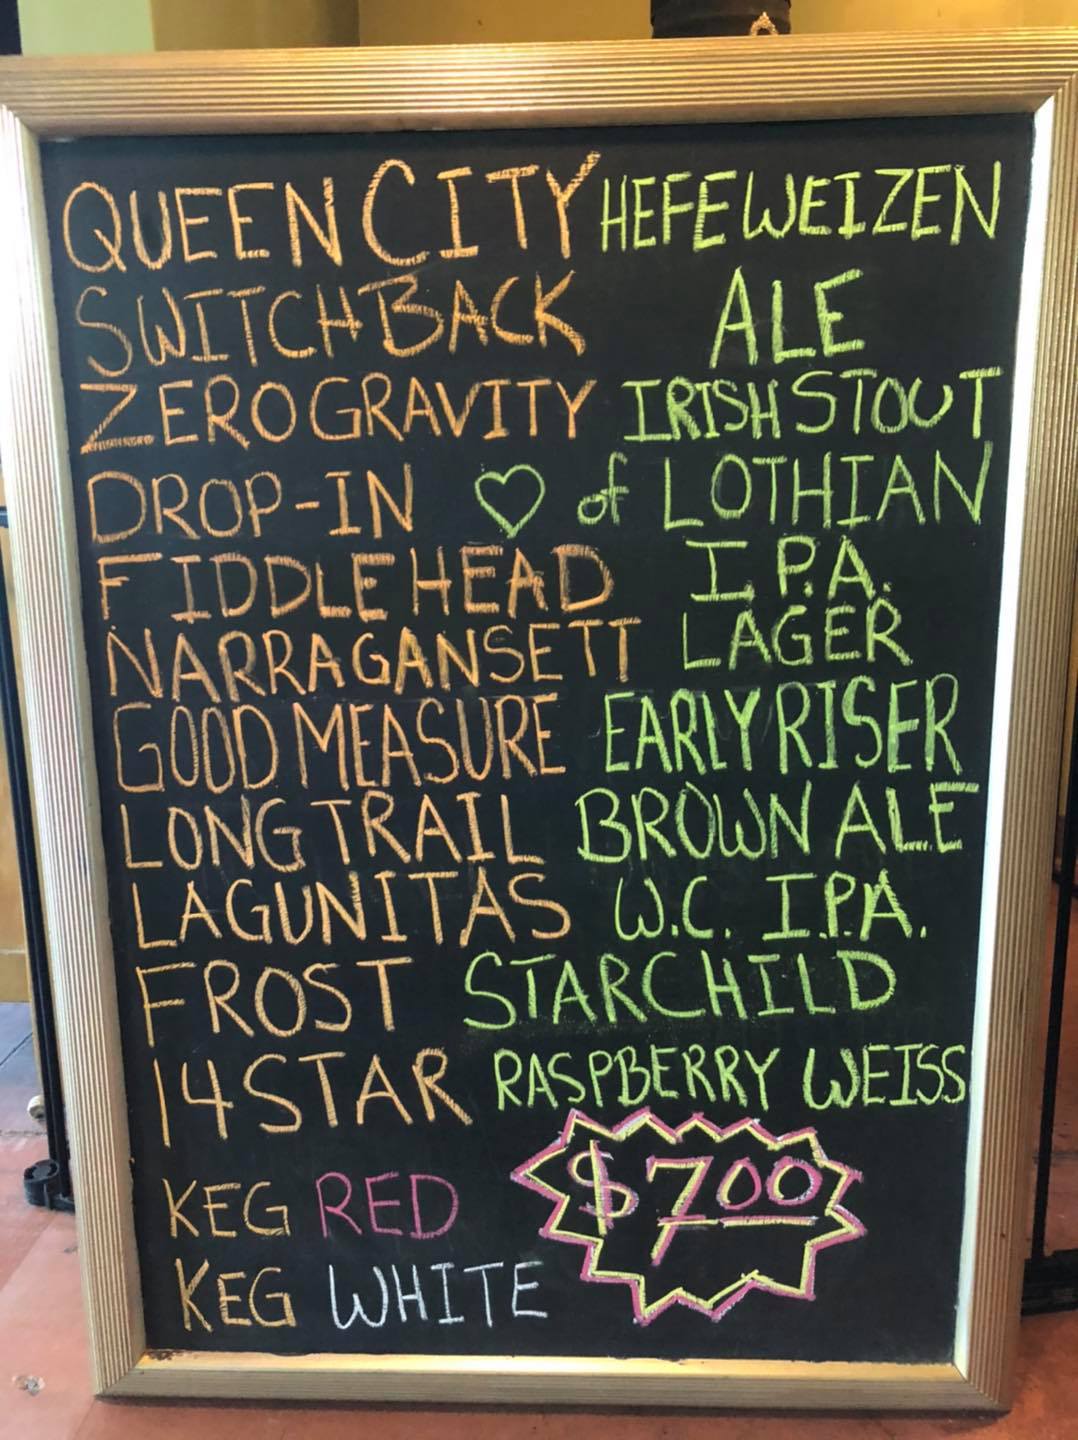 QUEEN CITY HEFEWEIZEN
SWITCHBACK ALE
ZERO GRAVITY IRISH STOUT
DROP-IN ♡ of LOTHIAN
FIDDLEHEAD I.P.A.
NARRAGANSETT LAGER
GOOD MEASURE EARLY RISER
LONG TRAIL BROWN ALE
LAGUNITAS W.C. I.P.A.
FROST STARCHILD
14 STAR RASPBERRY WEISS
KEG RED $7.00
KEG WHITE